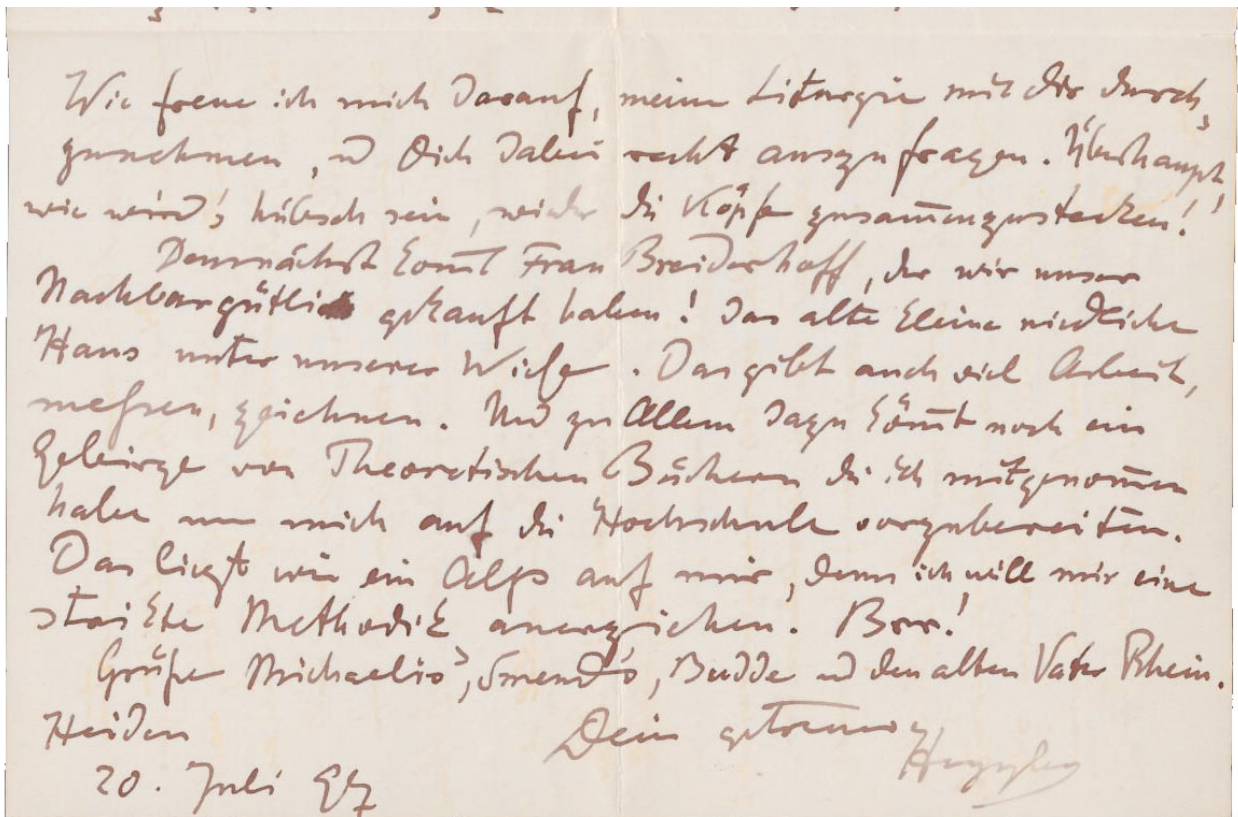 Wie freue ich mich darauf, meine Liturgie mit dir durch-
zunehmen, und Dich dabei recht auszufragen. Überhaupt
wie wird's hübsch sein, wieder die Köpfe zusam̄enzustecken!
Demnächst kom̄t Frau Breiderhoff, der wir unser
Nachbargütli gekauft haben! Das alte kleine niedliche
Haus unter unserer Wiese. Das gibt auch viel Arbeit,
messen, zeichnen. Und zu Allem dazu köm̄t noch ein
Gebirge von Theoretischen Büchern die ich mitgenom̄en
habe um mich auf die Hochschule vorzubereiten.
Das liegt wie ein Alp auf mir, denn ich will mir eine
strikte Methodik anerziehen. Brr!
Grüße Michaelis', Smend's, Budde und den alten Vater Rhein.
Heiden Dein getreuer
20. Juli